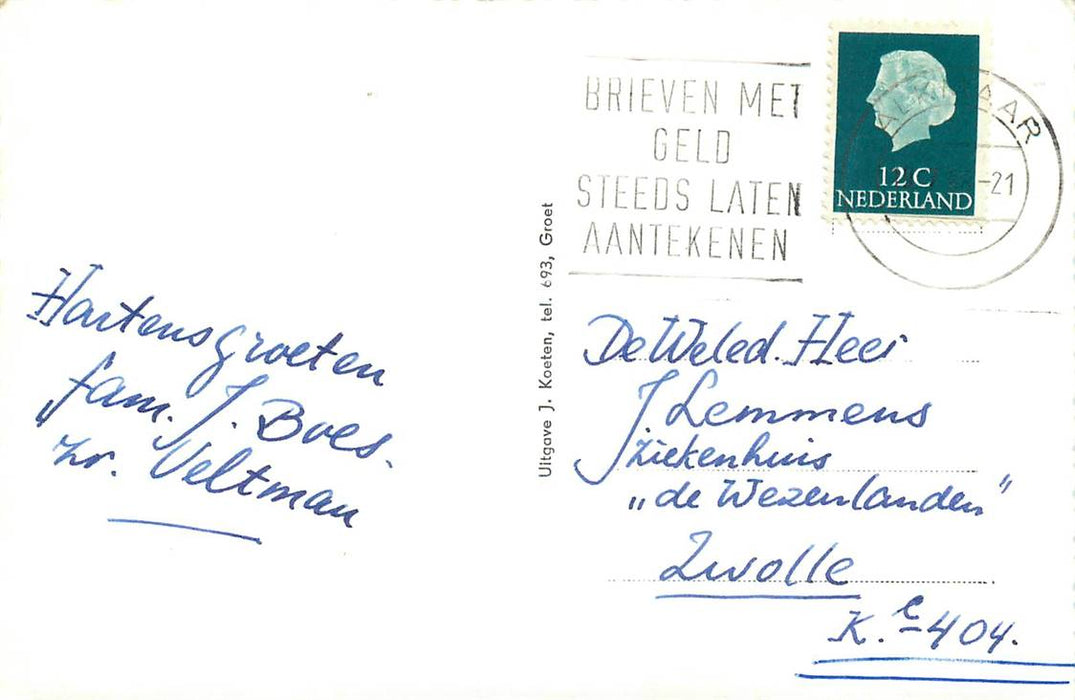 Hartensgroeten
fam. J. Boes.
" zr. Veltman
Uitgave J. Koeten, tel. 693, Groet
BRIEVEN MET
GELD
STEEDS LATEN
AANTEKENEN
ALKMAAR
-21
12 C
NEDERLAND
De Weled. Heer
J. Lemmens
Ziekenhuis
„de Wezenlanden"
Zwolle
K. 404.